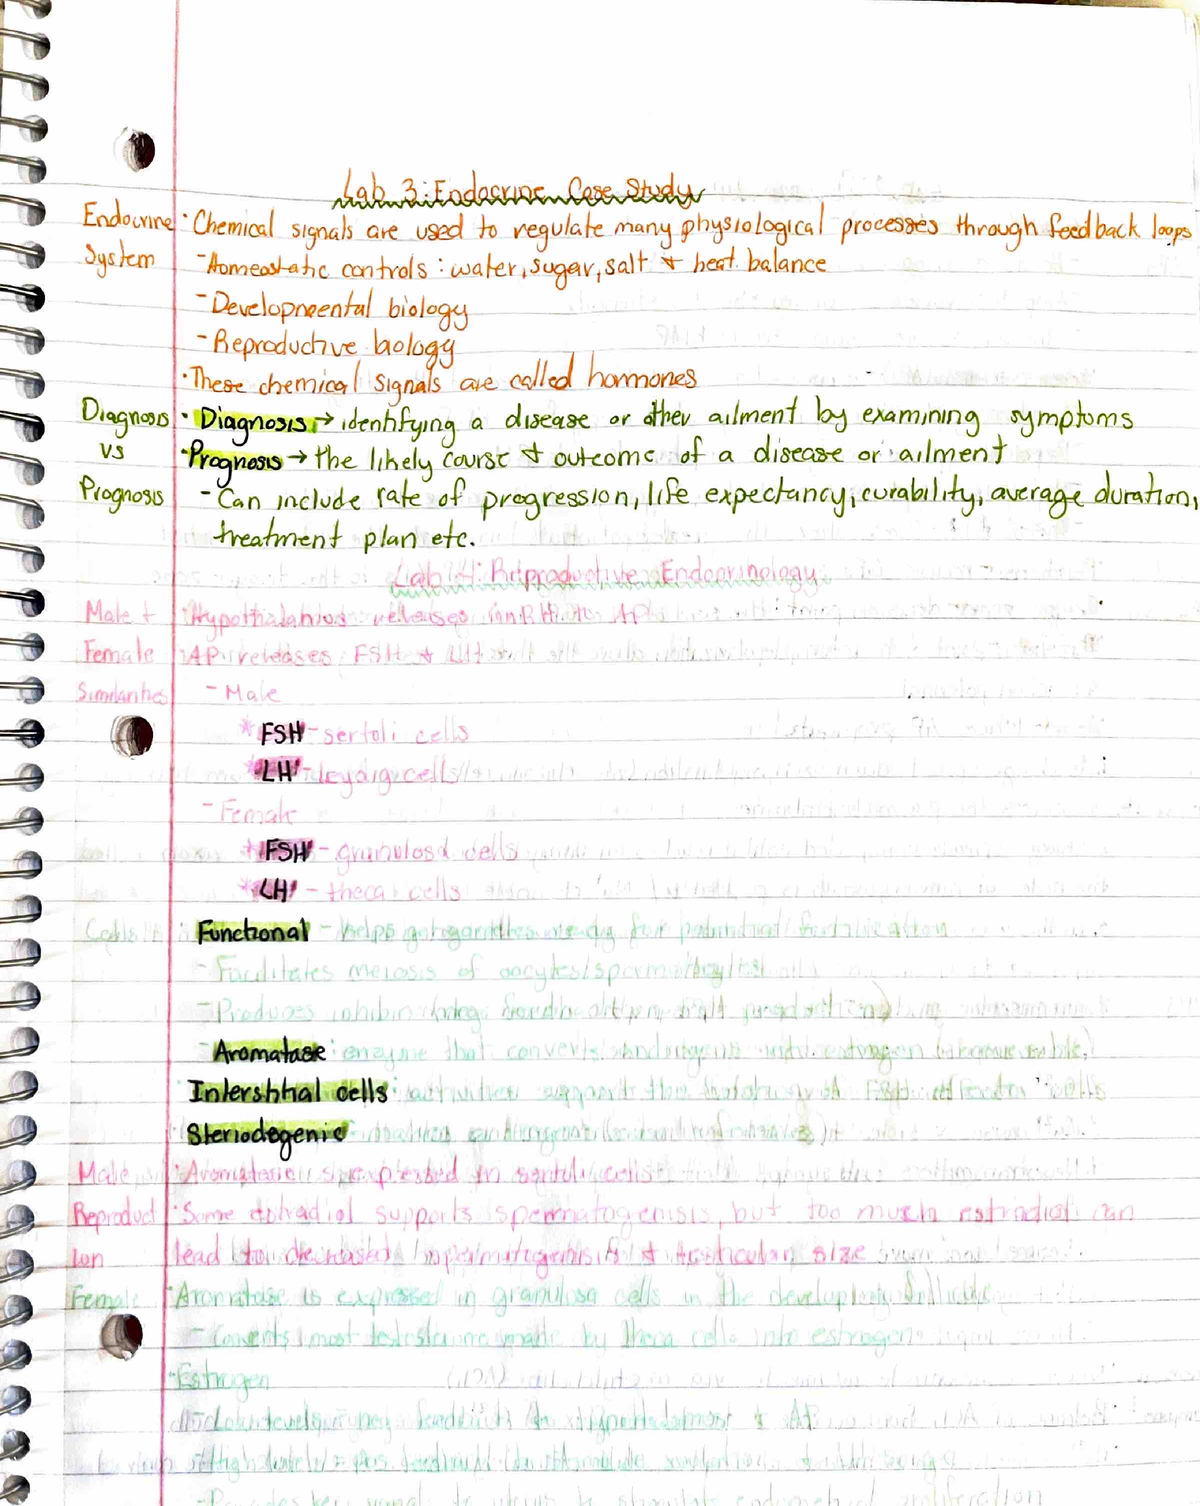 Lab 3: Endocrine Case Study
Endocrine · Chemical signals are used to regulate many physiological processes through feedback loops
System - Homeostatic controls: water, sugar, salt + heat balance
- Developmental biology
- Reproductive biology
· These chemical signals are called hormones
Diagnosis · Diagnosis → identifying a disease or other ailment by examining symptoms
vs · Prognosis → the likely course + outcome of a disease or ailment
Prognosis - Can include rate of progression, life expectancy, curability, average duration,
treatment plan etc.
Lab 4: Reproductive Endocrinology
Male + · Hypothalamus releases GnRH to AP
Female · AP releases FSH + LH
Similarities - Male
* FSH - sertoli cells
* LH - leydig cells
- Female
* FSH - granulosa cells
* LH - thecal cells
Cells Functional - helps get gametes ready for potential fertilization
- Facilitates meiosis of oocytes/spermatocytes
- Produces inhibin
- Aromatase: enzyme that converts androgens into estrogen
Interstitial cells: activities support the
Steriodegenic
Male · Aromatase is expressed in sertoli cells
Reproduct · Some estradiol supports spermatogenisis, but too much estradiol can
ion lead to decreased spermatogenisis + testicular size
Female · Aromatase is expressed in granulosa cells in the developing follicle
- Converts most testosterone made by theca cells into estrogen
· Estrogen
to uterus to stimulate endometrial proliferation